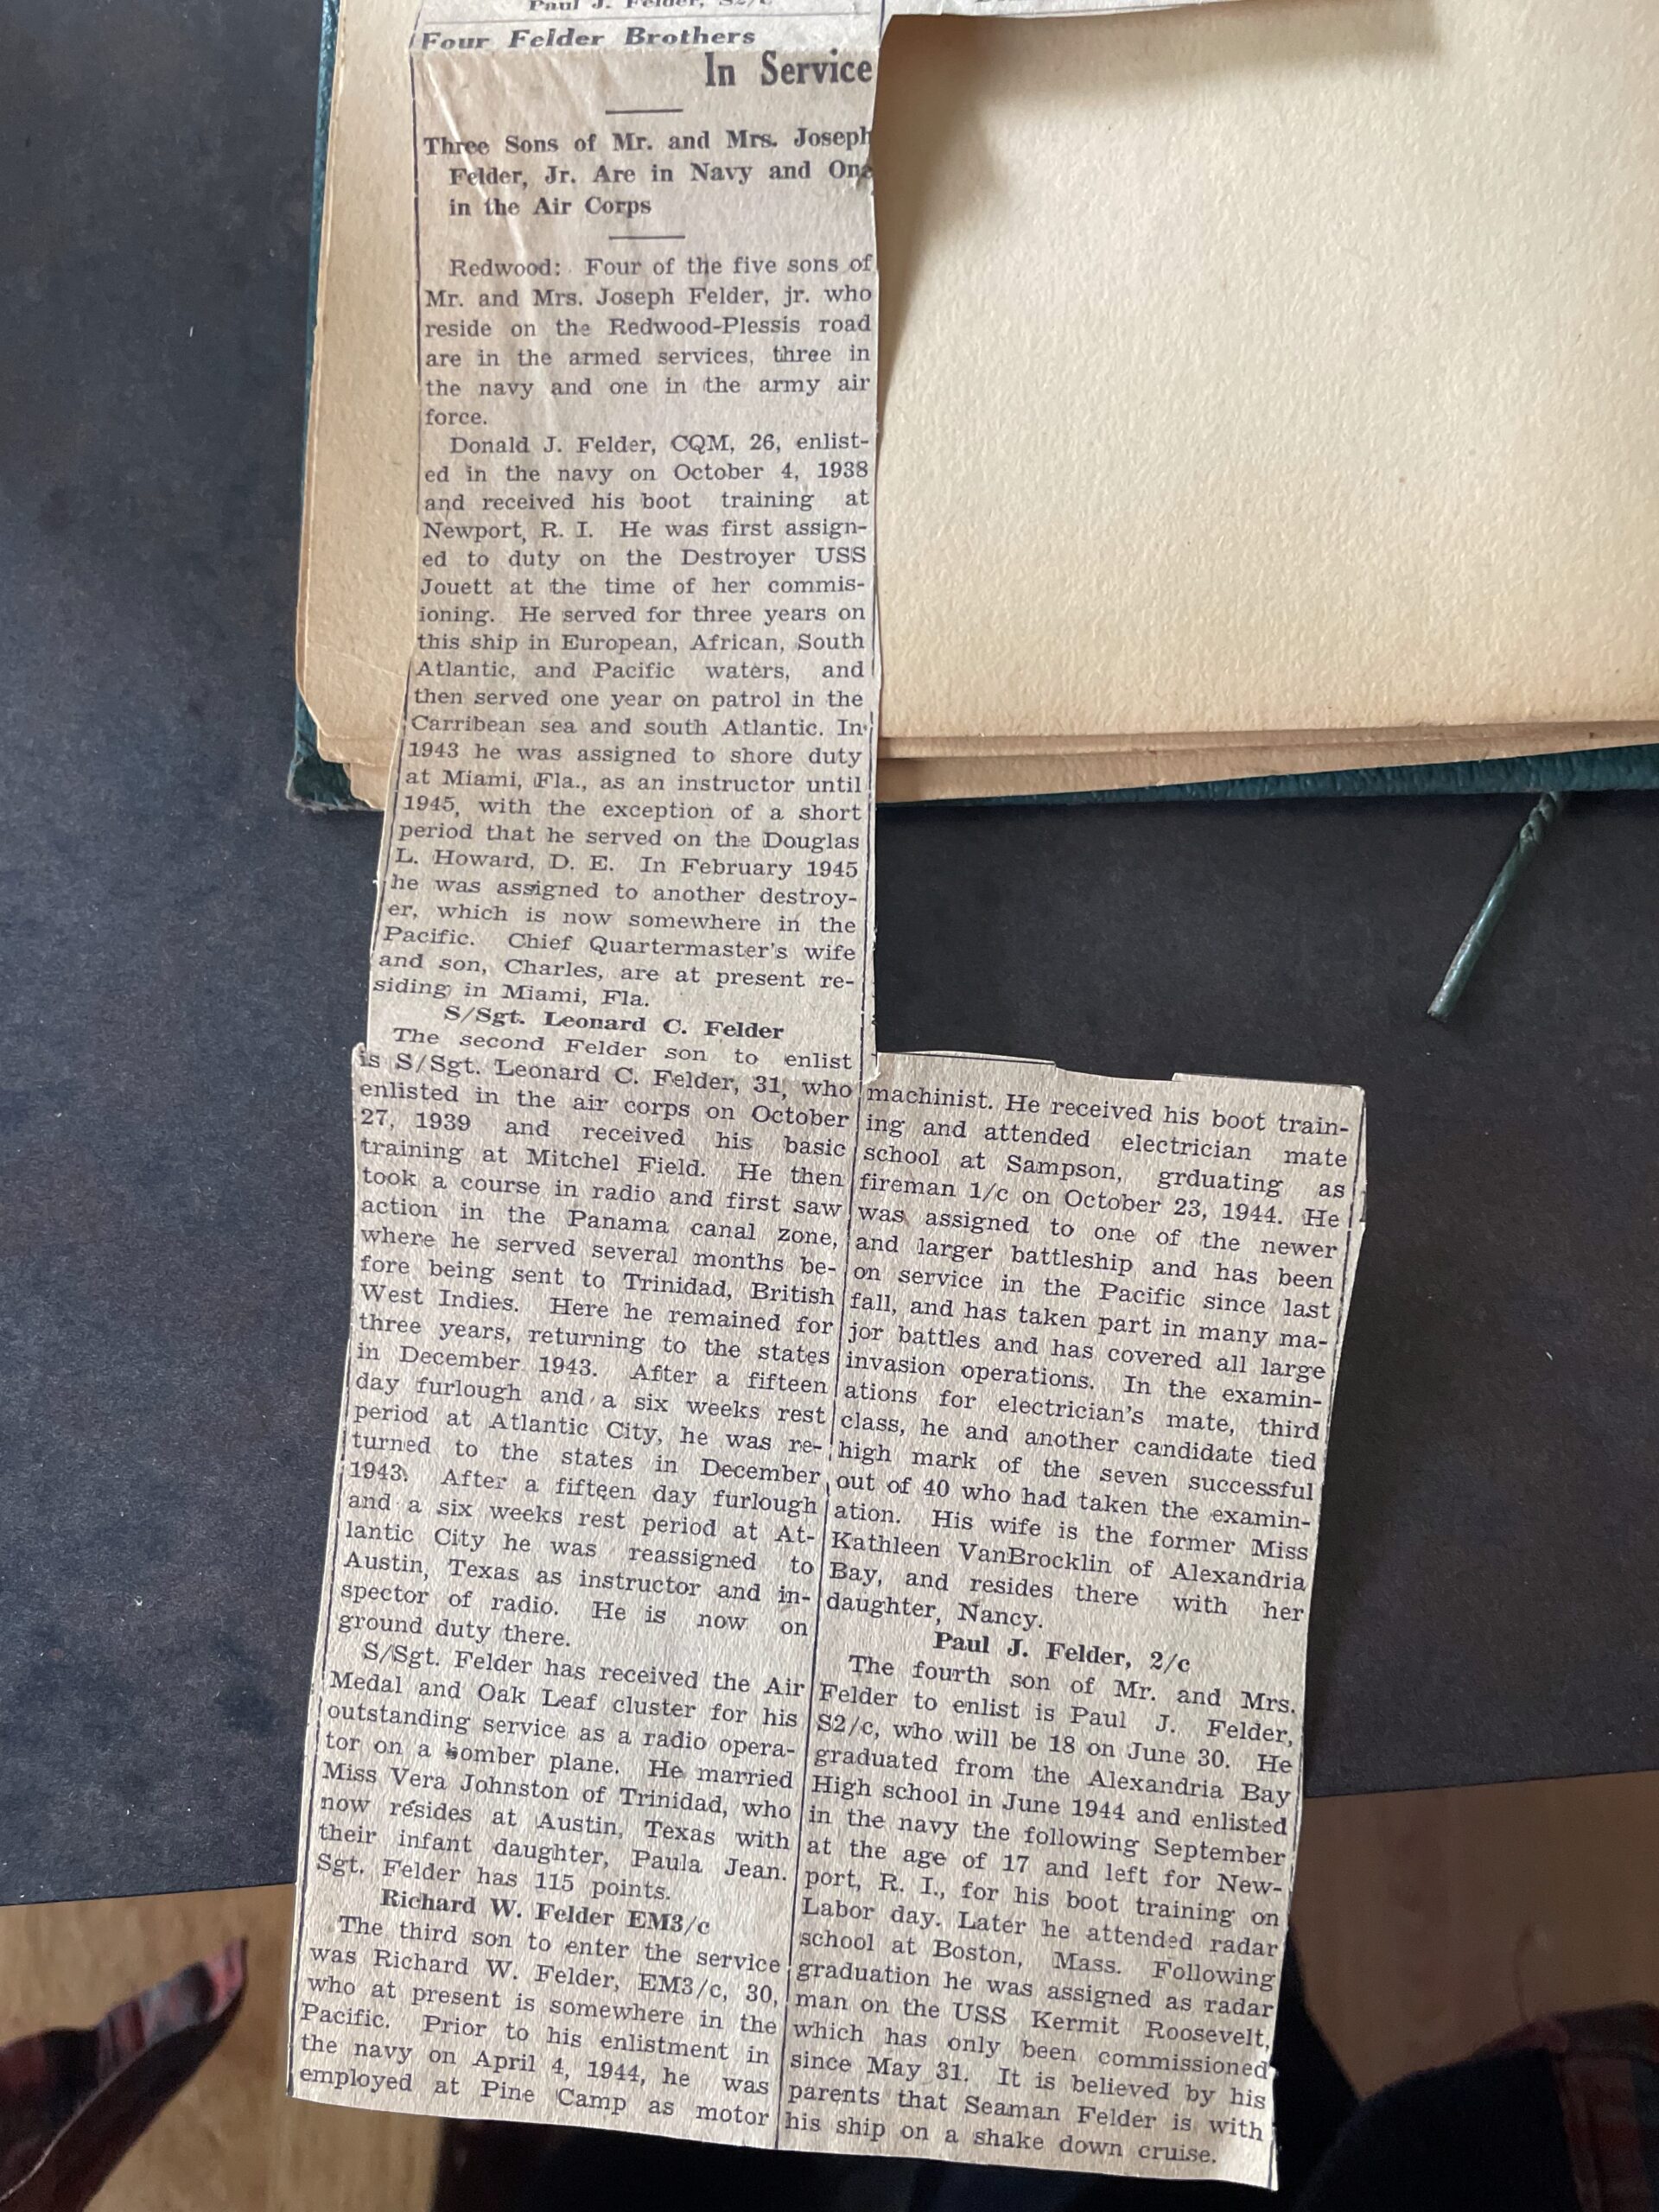 Paul J. Felder, S2/c
Four Felder Brothers
In Service
Three Sons of Mr. and Mrs. Joseph
Felder, Jr. Are in Navy and One
in the Air Corps
Redwood: Four of the five sons of
Mr. and Mrs. Joseph Felder, jr. who
reside on the Redwood-Plessis road
are in the armed services, three in
the navy and one in the army air
force.
Donald J. Felder, CQM, 26, enlist-
ed in the navy on October 4, 1938
and received his boot training at
Newport, R. I. He was first assign-
ed to duty on the Destroyer USS
Jouett at the time of her commis-
ioning. He served for three years on
this ship in European, African, South
Atlantic, and Pacific waters, and
then served one year on patrol in the
Carribean sea and south Atlantic. In
1943 he was assigned to shore duty
at Miami, Fla., as an instructor until
1945, with the exception of a short
period that he served on the Douglas
L. Howard, D. E. In February 1945
he was assigned to another destroy-
er, which is now somewhere in the
Pacific. Chief Quartermaster's wife
and son, Charles, are at present re-
siding in Miami, Fla.
S/Sgt. Leonard C. Felder
The second Felder son to enlist
is S/Sgt. Leonard C. Felder, 31, who
enlisted in the air corps on October
27, 1939 and received his basic
training at Mitchel Field. He then
took a course in radio and first saw
action in the Panama canal zone,
where he served several months be-
fore being sent to Trinidad, British
West Indies. Here he remained for
three years, returning to the states
in December 1943. After a fifteen
day furlough and a six weeks rest
period at Atlantic City, he was re-
turned to the states in December
1943. After a fifteen day furlough
and a six weeks rest period at At-
lantic City he was reassigned to
Austin, Texas as instructor and in-
spector of radio. He is now on
ground duty there.
S/Sgt. Felder has received the Air
Medal and Oak Leaf cluster for his
outstanding service as a radio opera-
tor on a bomber plane. He married
Miss Vera Johnston of Trinidad, who
now resides at Austin, Texas with
their infant daughter, Paula Jean.
Sgt. Felder has 115 points.
Richard W. Felder EM3/c
The third son to enter the service
was Richard W. Felder, EM3/c, 30,
who at present is somewhere in the
Pacific. Prior to his enlistment in
the navy on April 4, 1944, he was
employed at Pine Camp as motor
machinist. He received his boot train-
ing and attended electrician mate
school at Sampson, grduating as
fireman 1/c on October 23, 1944. He
was assigned to one of the newer
and larger battleship and has been
on service in the Pacific since last
fall, and has taken part in many ma-
jor battles and has covered all large
invasion operations. In the examin-
ations for electrician's mate, third
class, he and another candidate tied
high mark of the seven successful
out of 40 who had taken the examin-
ation. His wife is the former Miss
Kathleen VanBrocklin of Alexandria
Bay, and resides there with her
daughter, Nancy.
Paul J. Felder, 2/c
The fourth son of Mr. and Mrs.
Felder to enlist is Paul J. Felder,
S2/c, who will be 18 on June 30. He
graduated from the Alexandria Bay
High school in June 1944 and enlisted
in the navy the following September
at the age of 17 and left for New-
port, R. I., for his boot training on
Labor day. Later he attended radar
school at Boston, Mass. Following
graduation he was assigned as radar
man on the USS Kermit Roosevelt,
which has only been commissioned
since May 31. It is believed by his
parents that Seaman Felder is with
his ship on a shake down cruise.